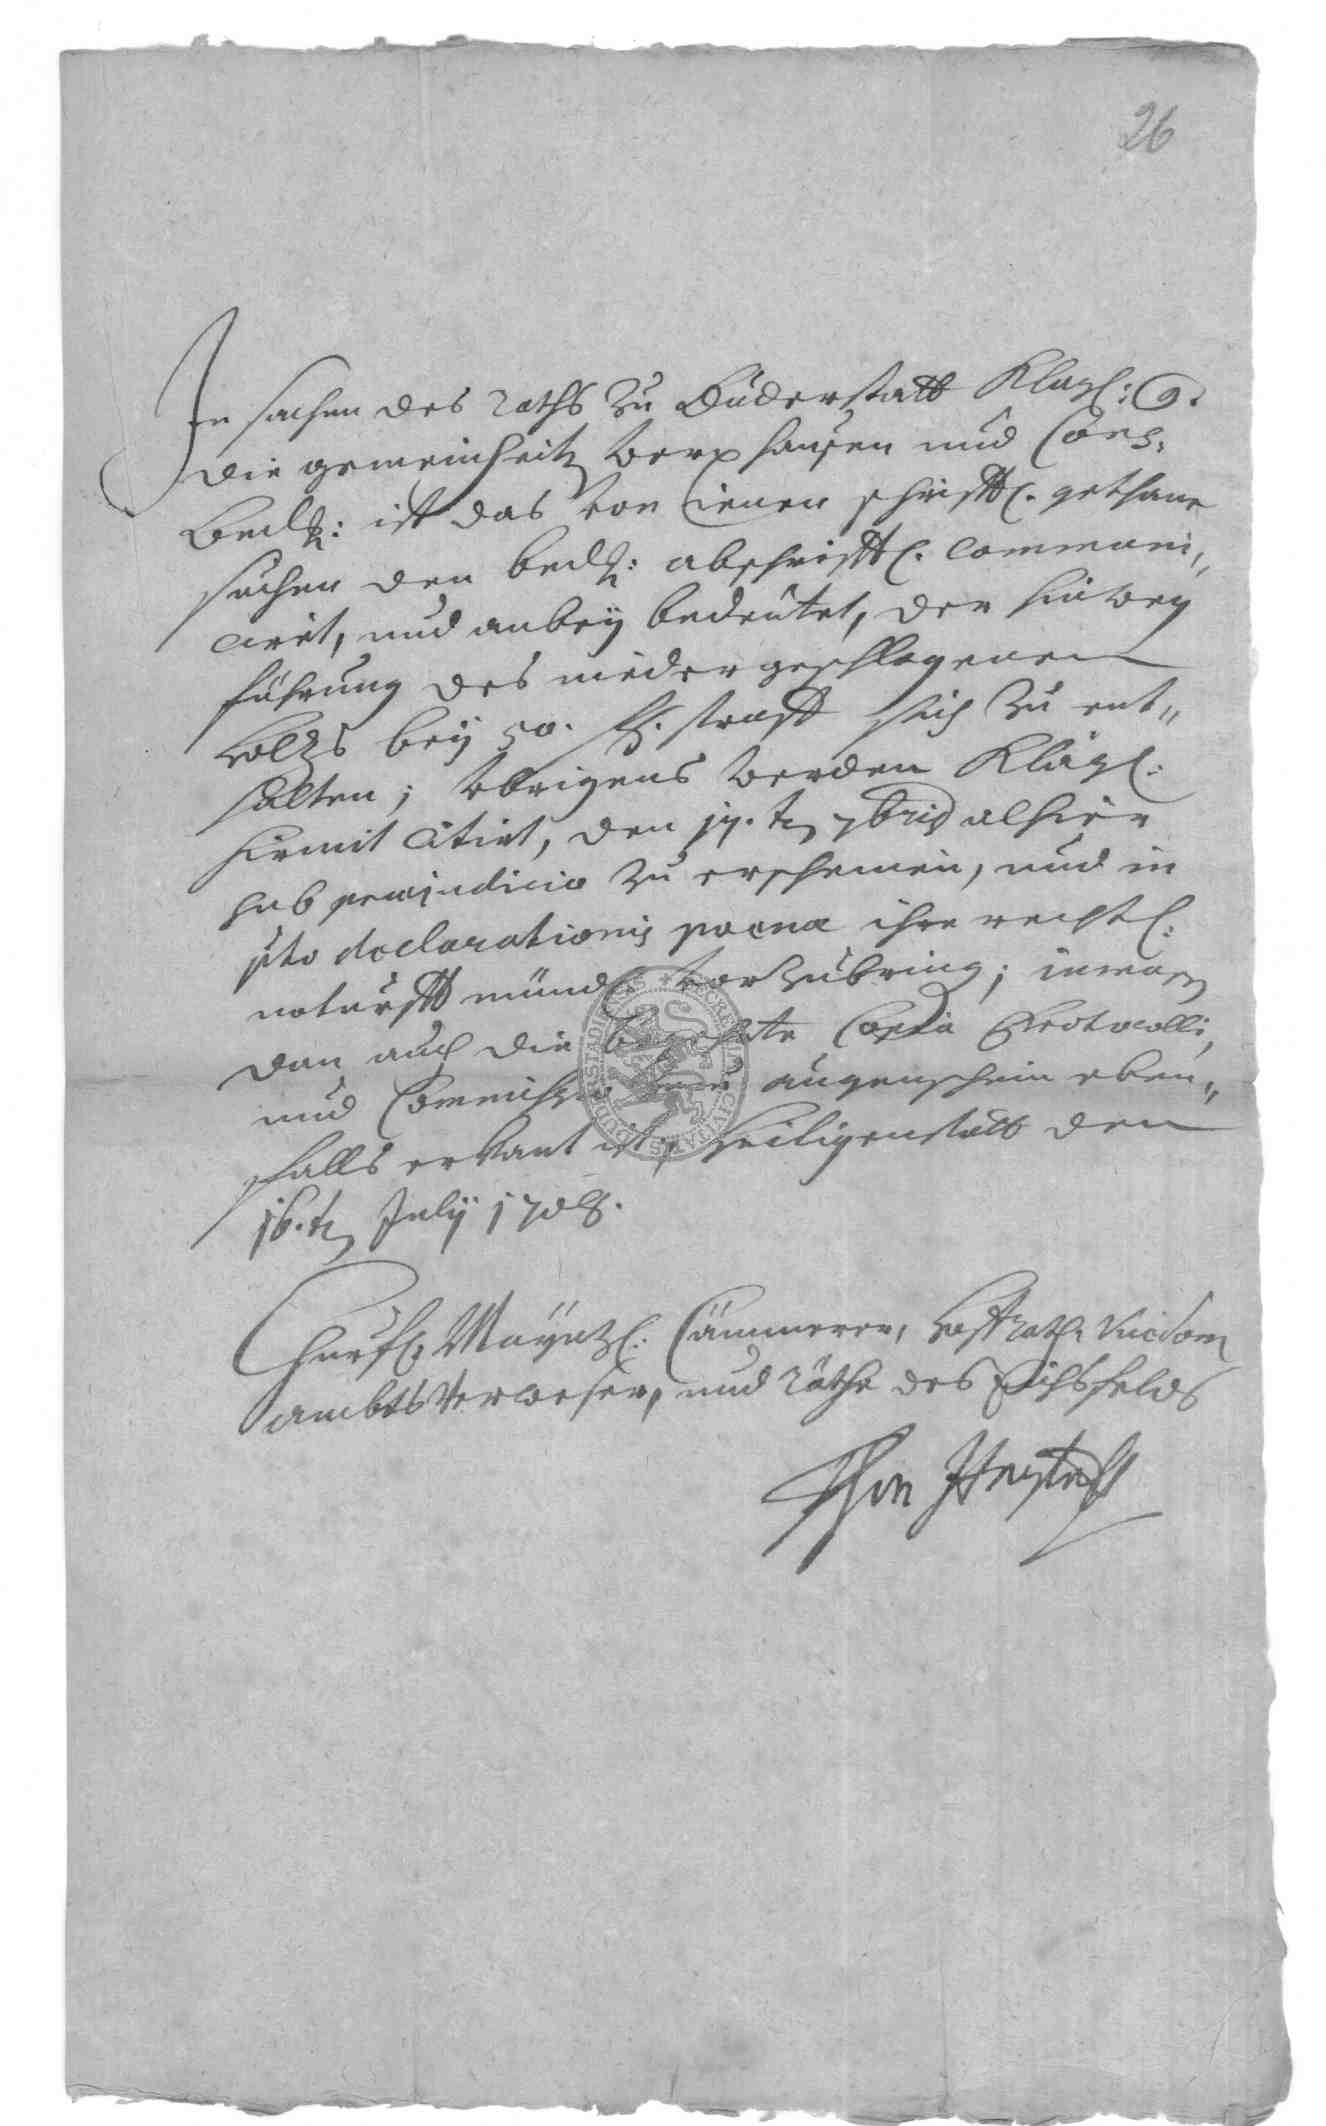 26
In sachen des raths zu Duderstatt Klägl: C.
die gemeinheit Berxhausen und Cons.
Beckl: ist das von ienen schrifftl. gethane
suchen den beckl: abschrifftl. communi„
cirt, und anbeÿ bedeutet, der hinweg
führung des niedergeschlagenen
holtzs beÿ 50. fl. straff sich zu ent„
halten; Übrigens werden Klägl:
hiermit citirt, den 17.t 7bris alhier
sub praejudicio zu erscheinen, und in
puncto declarationis poenae ihre rechtl:
noturfft mündl: vorzubring; inmaßen
dan auch die begehrte Copia Protocolli,
und Commissio zum augenschein eben„
falls erkant ist, Heiligenstatt den
16.t Julÿ 1708.
Churfl. Maÿntzl. Cämmerer, Hoffrath Vicedom
ambts Verweser, und Räthe des Eichsfelds
SECRETUM CIVITATIS DUDERSTADIENSIS